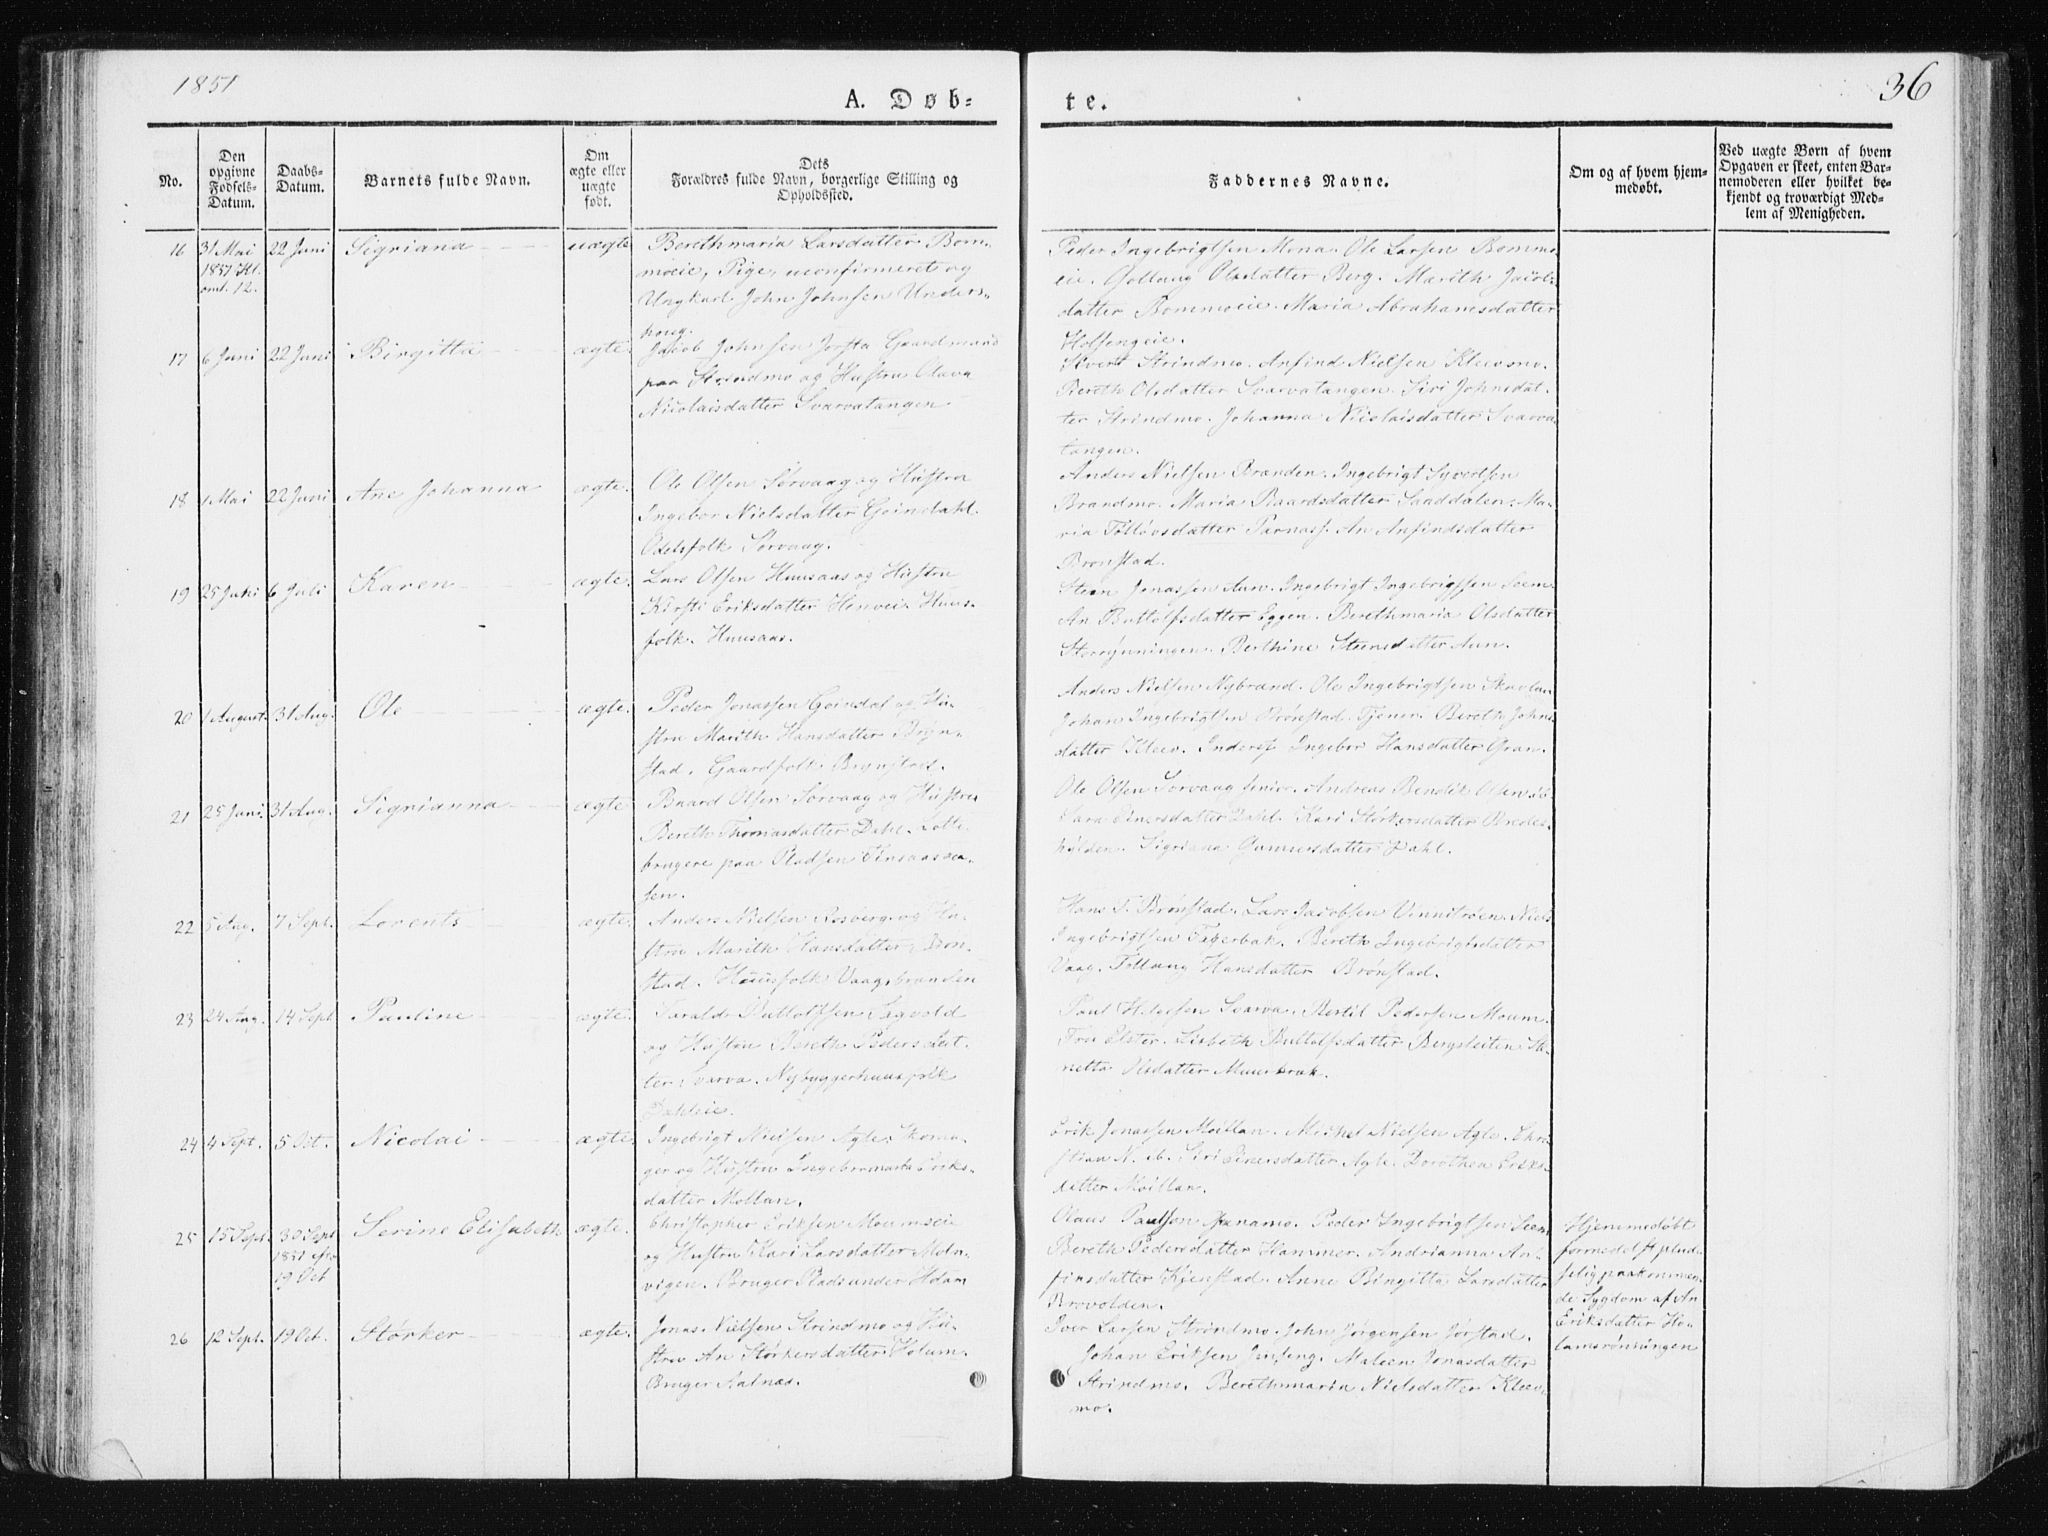 1851
36
A. Døb-
te.
No.
Den opgivne Fødsels-Datum.
Daabs-Datum.
Barnets fulde Navn.
Om ægte eller uægte født.
Dets
Forældres fulde Navn, borgerlige Stilling og
Opholdssted.
Faddernes Navne.
Om og af hvem hjem-
medøbt.
Ved uægte Børn af hvem
Opgaven er skeet, enten Bar-
nemoderen eller hvilket be-
kjendt og troværdigt Med-
lem af Menigheden.
16 31 Mai 1851 Kl. omt. 12. 22 Juni Sigriana uægte
Berethmaria Larsdatter Bom-
moeie, Pige, uconfirmeret og
Ungkarl John Johnsen Unders-
Peder Ingebrigtsen Mona. Ole Larsen Bommo-
eie. Olsdatter Berg. Marith Jacobs-
datter Bommoeie. Maria Abrahamsdatter
17 6 Juni 22 Juni Birgitta ægte.
Jacob Johnsen Jørsta Gaardmand
paa Strindmo og Hustru Olava
Nicolaisdatter Svarvatangen
Sivert Strindmo. Anfind Nielsen Kleevmo.
Bereth Olsdatter Svarvatangen. Siri Johnsdat-
ter Strindmo. Johanna Nicolaisdatter Svarva-
tangen.
18 1 Mai 22 Juni Ane Johanna ægte.
Ole Olsen Sørvaag og Hustru
Ingebor Nielsdatter Goindahl.
Odelsfolk Sørvaag.
Anders Nielsen Brænden. Ingebrigt Syvertsen
Brandmo. Maria Baardsdatter Saaddalen. Ma-
ria Tølløvsdatter Parnass. An Anfindsdatter
Bronstad.
19 25 Juni 6 Juli Karen ægte.
Lars Olsen Huusaas og Hustru
Kirsti Eriksdatter Huus-
folk. Huusaas.
Steen Jonassen Aun. Ingebrigt Ingebrigtsen Seem.
An Buttolfsdatter Eggen. Berethmaria Olsdatter
Storrynningen. Berthine Steensdatter Aun.
20 1 August. 31 Aug. Ole ægte.
Peder Jonassen Goindal og Hu-
stru Marith Hansdatter Bryn-
stad. Gaardfolk Brynstad.
Anders Nielsen Nybrænd. Ole Ingebrigtsen Skavlan
Johan Ingebrigtsen Brønstad. Tjener. Bereth Johns-
datter Kleev. Inderst Ingebor Hansdatter Gran.
21 25 Juni. 31 Aug. Sigrianna ægte
Baard Olsen Sørvaag og Hustru
Bereth Thomasdatter Dahl.
brugere paa Pladsen
Ole Olsen Sørvaag senior. Andreas Bendik Olsen ib.
Sara Einersdatter Dahl. Kari Størkersdatter
Sigriana Gunnersdatter Dahl.
22 5 Aug. 7 Sept. Lorents ægte.
Anders Nielsen Rosberg og Hu-
stru Marith Hansdatter Bron-
stad. Huusfolk Vaagsbranden
Hans T. Brønstad. Lars Jacobsen Vinnitrøen. Niels
Ingebrigtsen Fagerbak. Bereth Ingebrigtsdatter
Vaag. Tollaug Hansdatter Brønstad.
23 24 Aug. 14 Sept Pauline ægte.
Buttolfsen Lagvold
og Hustru Bereth Pedersdat-
ter Svarva. Nybyggerhuusfolk
Paul Svarva. Bertil Pedersen Moum.
Fru Elster. Lisbeth Buttolfsdatter Bergsleiten
24 4 Sept. 5 Oct. Nicolai ægte.
Ingebrigt Nielsen Agle. Skoma-
ger og Hustru Eriks-
datter Mollan.
Erik Jonassen Moillan. Michel Nielsen Agle. Chri-
stian N. ib. Siri Einersdatter Agle. Dorothea Eriks-
datter Moillan.
25 15 Sept. 30 Sept 1851 19 Oct Serine Elisabeth ægte.
Christopher Eriksen Moumseie
og Hustru Kari Larsdatter Moln-
vigen. Bruger Plads under
Olaus Paulsen Peder Ingebrigtsen Seem
Bereth Pedersdatter Hammer. Andrianna An-
finsdatter Kjenstad. Anne Birgitta Larsdatter
Brovolden.
Hjemmedøbt
formedelst plud-
selig paakommen-
de Sygdom af An
Eriksdatter Ho-
lamsrønningen
26 12 Sept. 19 Oct. Størker ægte.
Jonas Nielsen Strindmo og Hu-
stru An Størkersdatter Holum.
Bruger
Iver Larsen Strindmo. John Jørgensen Jørstad.
Johan Eriksen Maleen Jonasdatter
Strindmo. Berethmaria Nielsdatter Kleev-
mo.